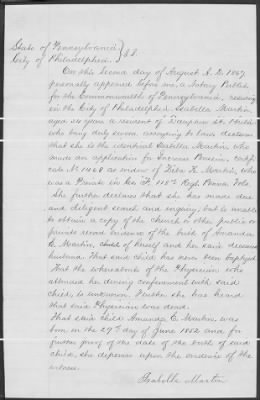 State of Pennsylvania }
City of Philadelphia } SS.
On this Second day of August A.D. 1867
personally appeared before me, a Notary Public
for the Commonwealth of Pennsylvania, residing
in the City of Philadelphia Isabella Martin
aged 34 years a resident of Dauphin St. Phila
who being duly sworn, according to law, declares
that she is the identical Isabella Martin, who
made an application for Increase Pension, Certifi
cate No. as widow of K. Martin, who
was a Private in Co. F. 118th Regt Penna Vols.
She further declares that she has made due
and diligent search and enquiry, but is unable
to obtain a copy of the church or other public or
private record evidence of the birth of Amanda
E. Martin, child of herself and her said deceased
husband. That said child has never been baptized
That the whereabouts of the Physician who
attended her during confinement with said
child, is unknown. Further she has heard
that said Physician was dead.
That said child Amanda E. Martin, was
born on the 29th day of June 1852 and for
further proof of the date of the birth of said
child, she depends upon the evidence of the
witness.
Isabella Martin